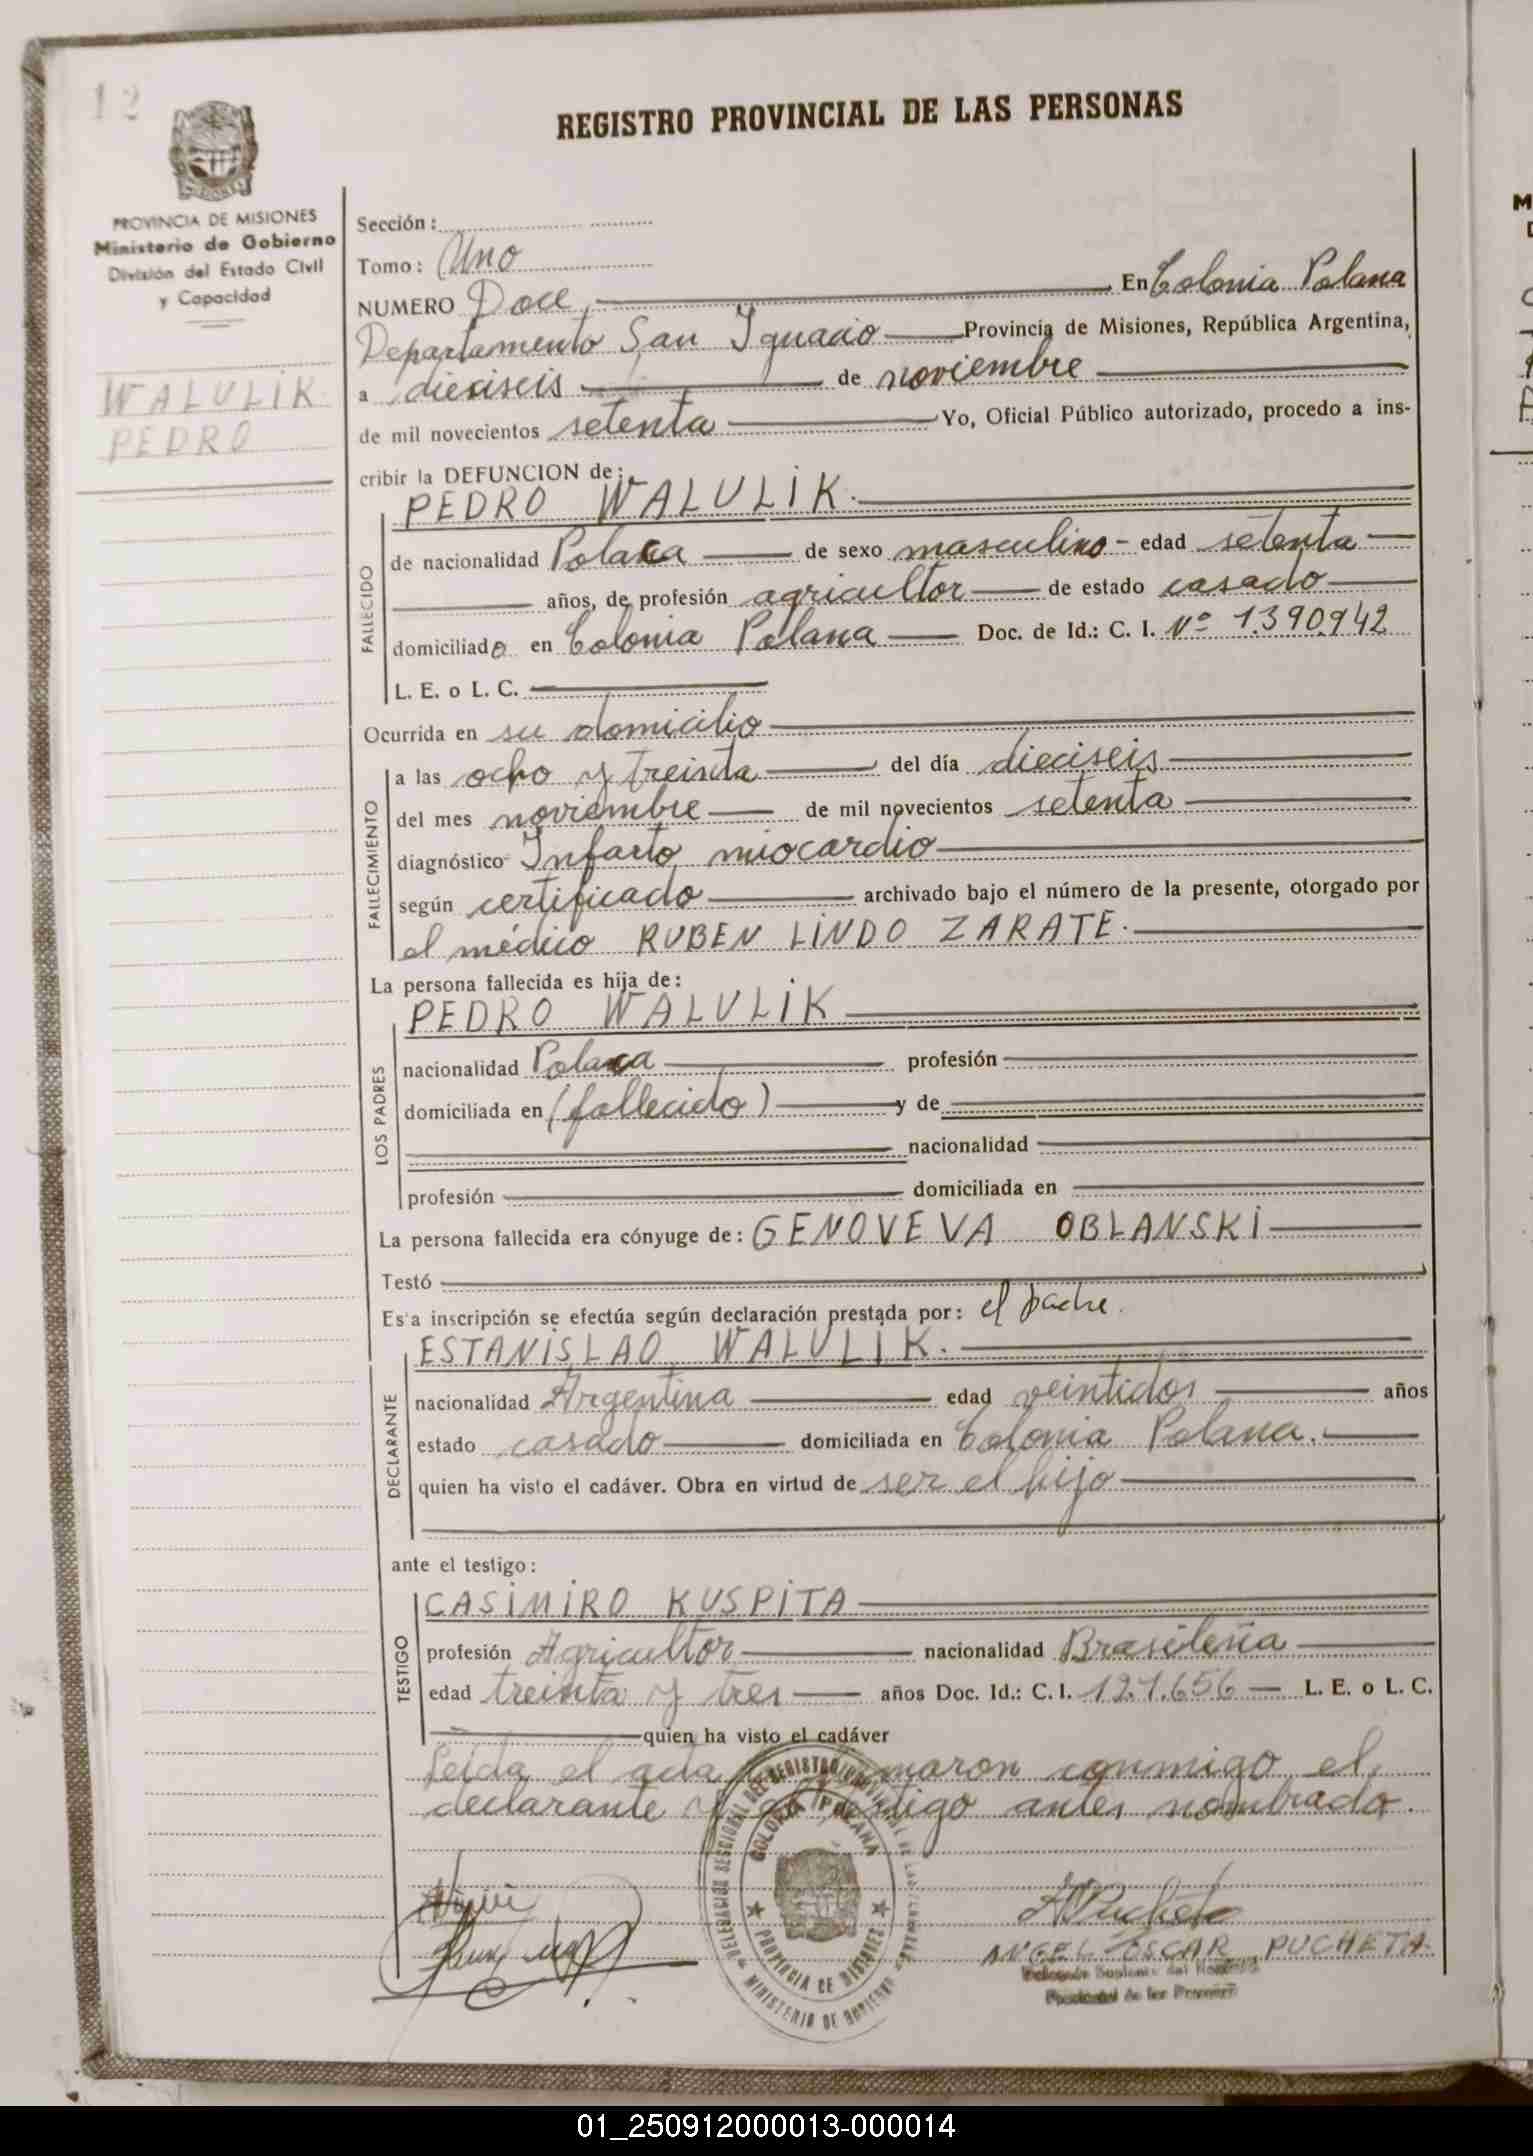 12
REGISTRO PROVINCIAL DE LAS PERSONAS
PROVINCIA DE MISIONES
Ministerio de Gobierno
División del Estado Civil
y Capacidad
WALULIK
PEDRO
Sección:
Tomo: Uno
NUMERO Doce En Colonia Polana
Departamento San Ignacio Provincia de Misiones, República Argentina,
a dieciseis de noviembre
de mil novecientos setenta Yo, Oficial Público autorizado, procedo a ins-
cribir la DEFUNCION de:
PEDRO WALULIK.
FALLECIDO
de nacionalidad Polaca de sexo masculino - edad setenta
años, de profesión agricultor de estado casado
domiciliado en Colonia Polana Doc. de Id.: C. I. Nº 1.390.942
L. E. o L. C.
Ocurrida en su domicilio
FALLECIMIENTO
a las ocho y treinta del día dieciseis
del mes noviembre de mil novecientos setenta
diagnóstico Infarto miocardio
según certificado archivado bajo el número de la presente, otorgado por
el médico RUBEN LINDO ZARATE.
La persona fallecida es hija de:
LOS PADRES
PEDRO WALULIK
nacionalidad Polaca profesión
domiciliada en (fallecido) y de
nacionalidad
profesión domiciliada en
La persona fallecida era cónyuge de: GENOVEVA OBLANSKI
Testó
Es'a inscripción se efectúa según declaración prestada por: el padre.
DECLARANTE
ESTANISLAO WALULIK.
nacionalidad Argentina edad veintidos años
estado casado domiciliada en Colonia Polana.
quien ha visto el cadáver. Obra en virtud de ser el hijo
ante el testigo:
TESTIGO
CASIMIRO KUSPITA
profesión Agricultor nacionalidad Brasileña
edad treinta y tres años Doc. Id.: C. I. 121.656 L. E. o L. C.
quien ha visto el cadáver
Leida el acta conmigo el
declarante y el testigo antes nombrado.
COLONIA POLANA
PROVINCIA DE MISIONES
MINISTERIO DE GOBIERNO
ANGEL OSCAR PUCHETA
01_250912000013-000014